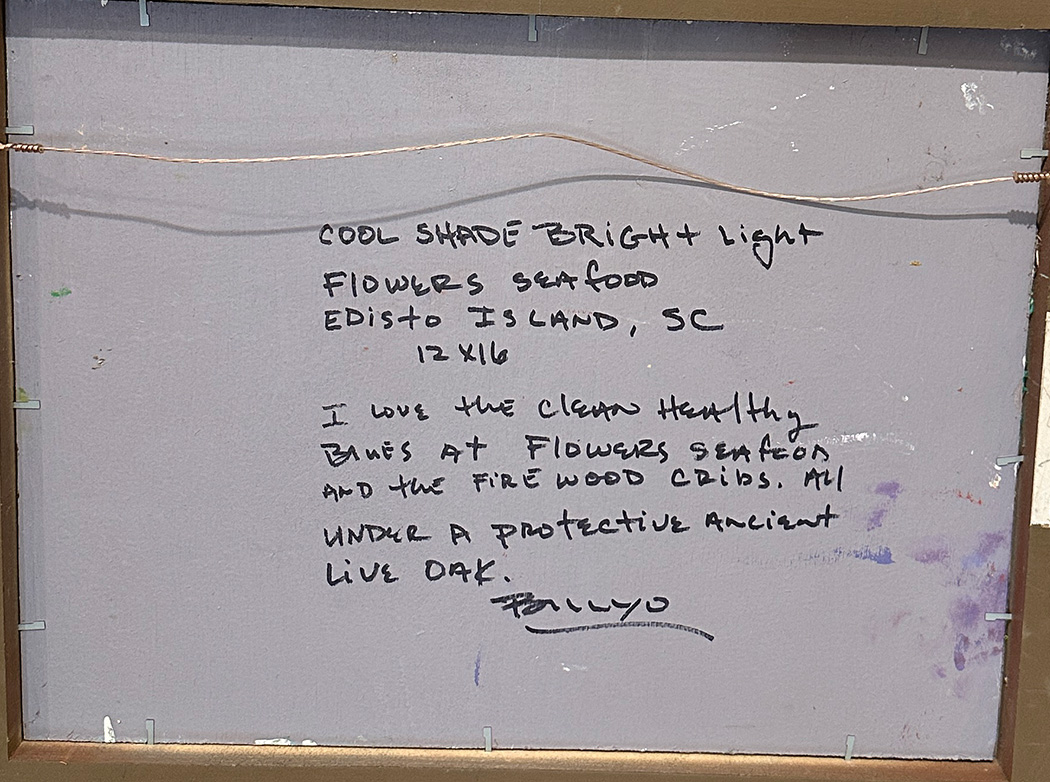 COOL SHADE BRIGHT Light
FLOWERS SEAfOOD
EDisto ISLAND, SC
12 X16
I LOVE the CLEAN HEALthy
BLUES At FLOWERS SEAFOOD
AND the FIRE WOOD CRIBS. All
UNDER A PROTECTIVE ANCIENT
LIVE OAK.